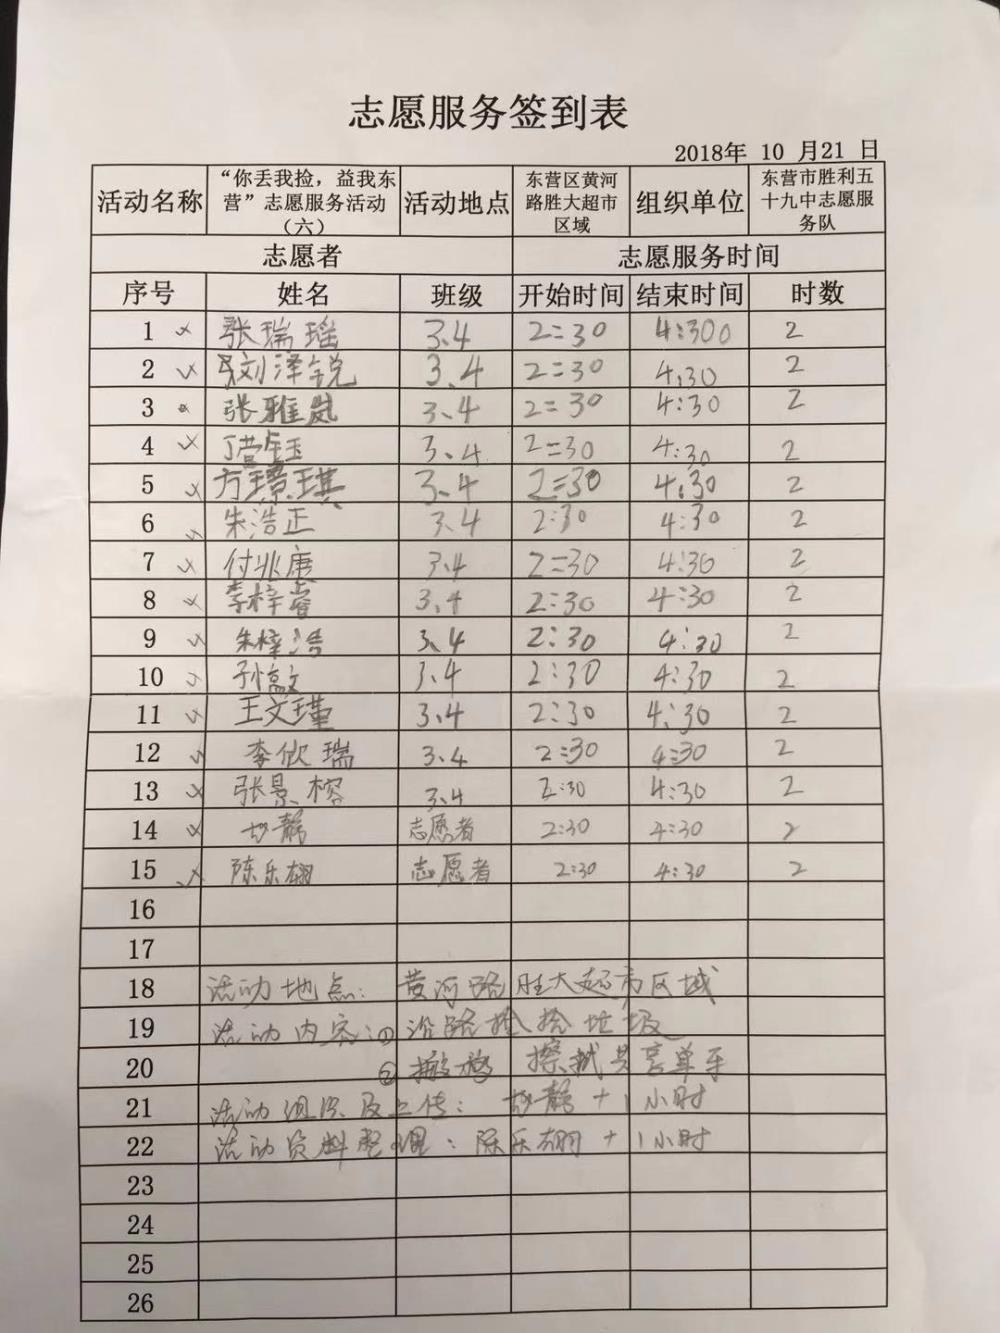 志愿服务签到表
2018年 10 月21 日
活动名称 “你丢我捡，益我东营”志愿服务活动（六） 活动地点 东营区黄河路胜大超市区域 组织单位 东营市胜利五十九中志愿服务队
志愿者 志愿服务时间
序号 姓名 班级 开始时间 结束时间 时数
1 张瑞瑶 3.4 2:30 4:300 2
2 刘泽锐 3.4 2:30 4:30 2
3 张雅岚 3.4 2:30 4:30 2
4 3.4 2:30 4:30 2
5 方璟琪 3.4 2:30 4:30 2
6 朱浩正 3.4 2:30 4:30 2
7 付兆康 3.4 2:30 4:30 2
8 李梓睿 3.4 2:30 4:30 2
9 朱梓浩 3.4 2:30 4:30 2
10 3.4 2:30 4:30 2
11 王文瑾 3.4 2:30 4:30 2
12 李攸瑞 3.4 2:30 4:30 2
13 张景榕 3.4 2:30 4:30 2
14 志愿者 2:30 4:30 2
15 陈乐翮 志愿者 2:30 4:30 2
16
17
18 活动地点：黄河路胜大超市区域
19 活动内容：①沿路捡拾垃圾
20 ② 擦拭共享单车
21 活动组织及上传： +1小时
22 活动资料整理：陈乐翮+1小时
23
24
25
26